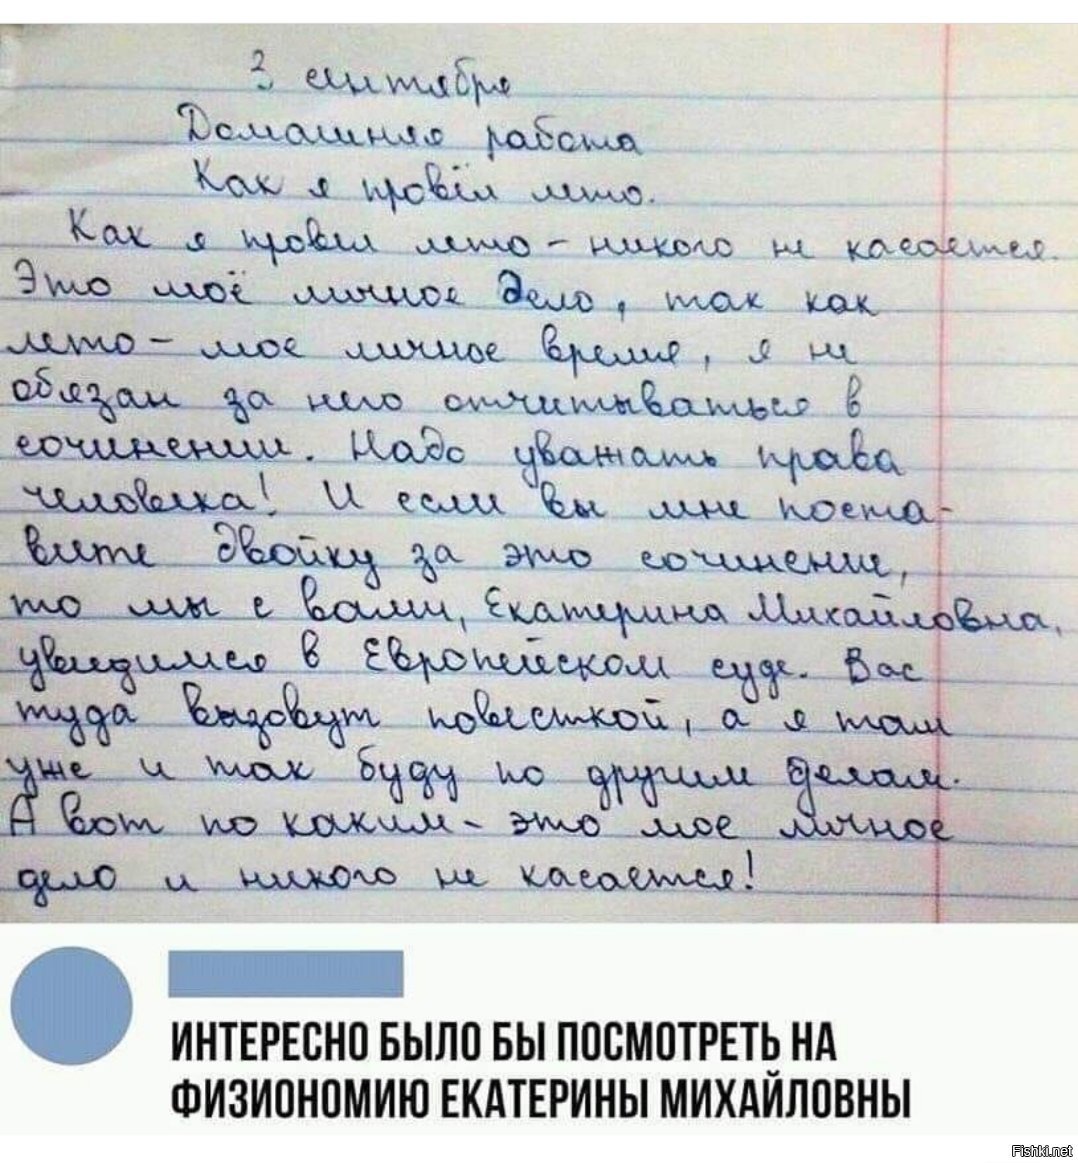 3 сентября
Домашняя работа
Как я провёл лето.
Как я провел лето - никого не касается.
Это моё личное дело, так как
лето - мое личное время, я не
обязан за него отчитываться в
сочинении. Надо уважать права
человека! И если вы мне поста-
вите двойку за это сочинение,
то мы с вами, Екатерина Михайловна,
увидимся в Европейском суде. Вас
туда вызовут повесткой, а я там
уже и так буду по другим делам.
А вот по каким - это мое личное
дело и никого не касается!
ИНТЕРЕСНО БЫЛО БЫ ПОСМОТРЕТЬ НА
ФИЗИОНОМИЮ ЕКАТЕРИНЫ МИХАЙЛОВНЫ
Fishki.net